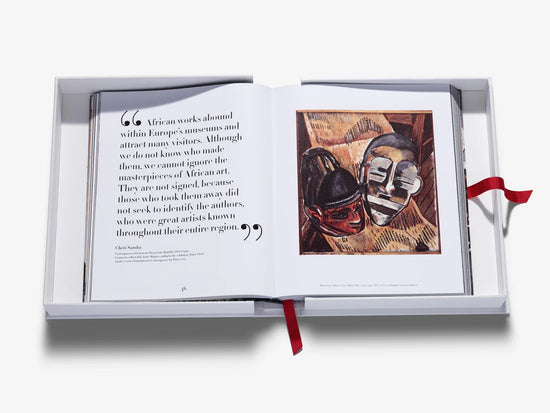 “ African works abound
within Europe’s museums and
attract many visitors. Although
we do not know who made
them, we cannot ignore the
masterpieces of African art.
They are not signed, because
those who took them away did
not seek to identify the authors,
who were great artists known
throughout their entire region. ”
Chéri Samba